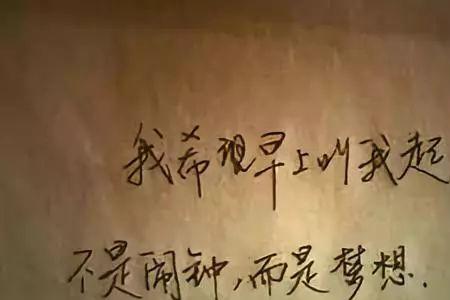 我希现早上叫我起
不是闹钟,而是梦想.